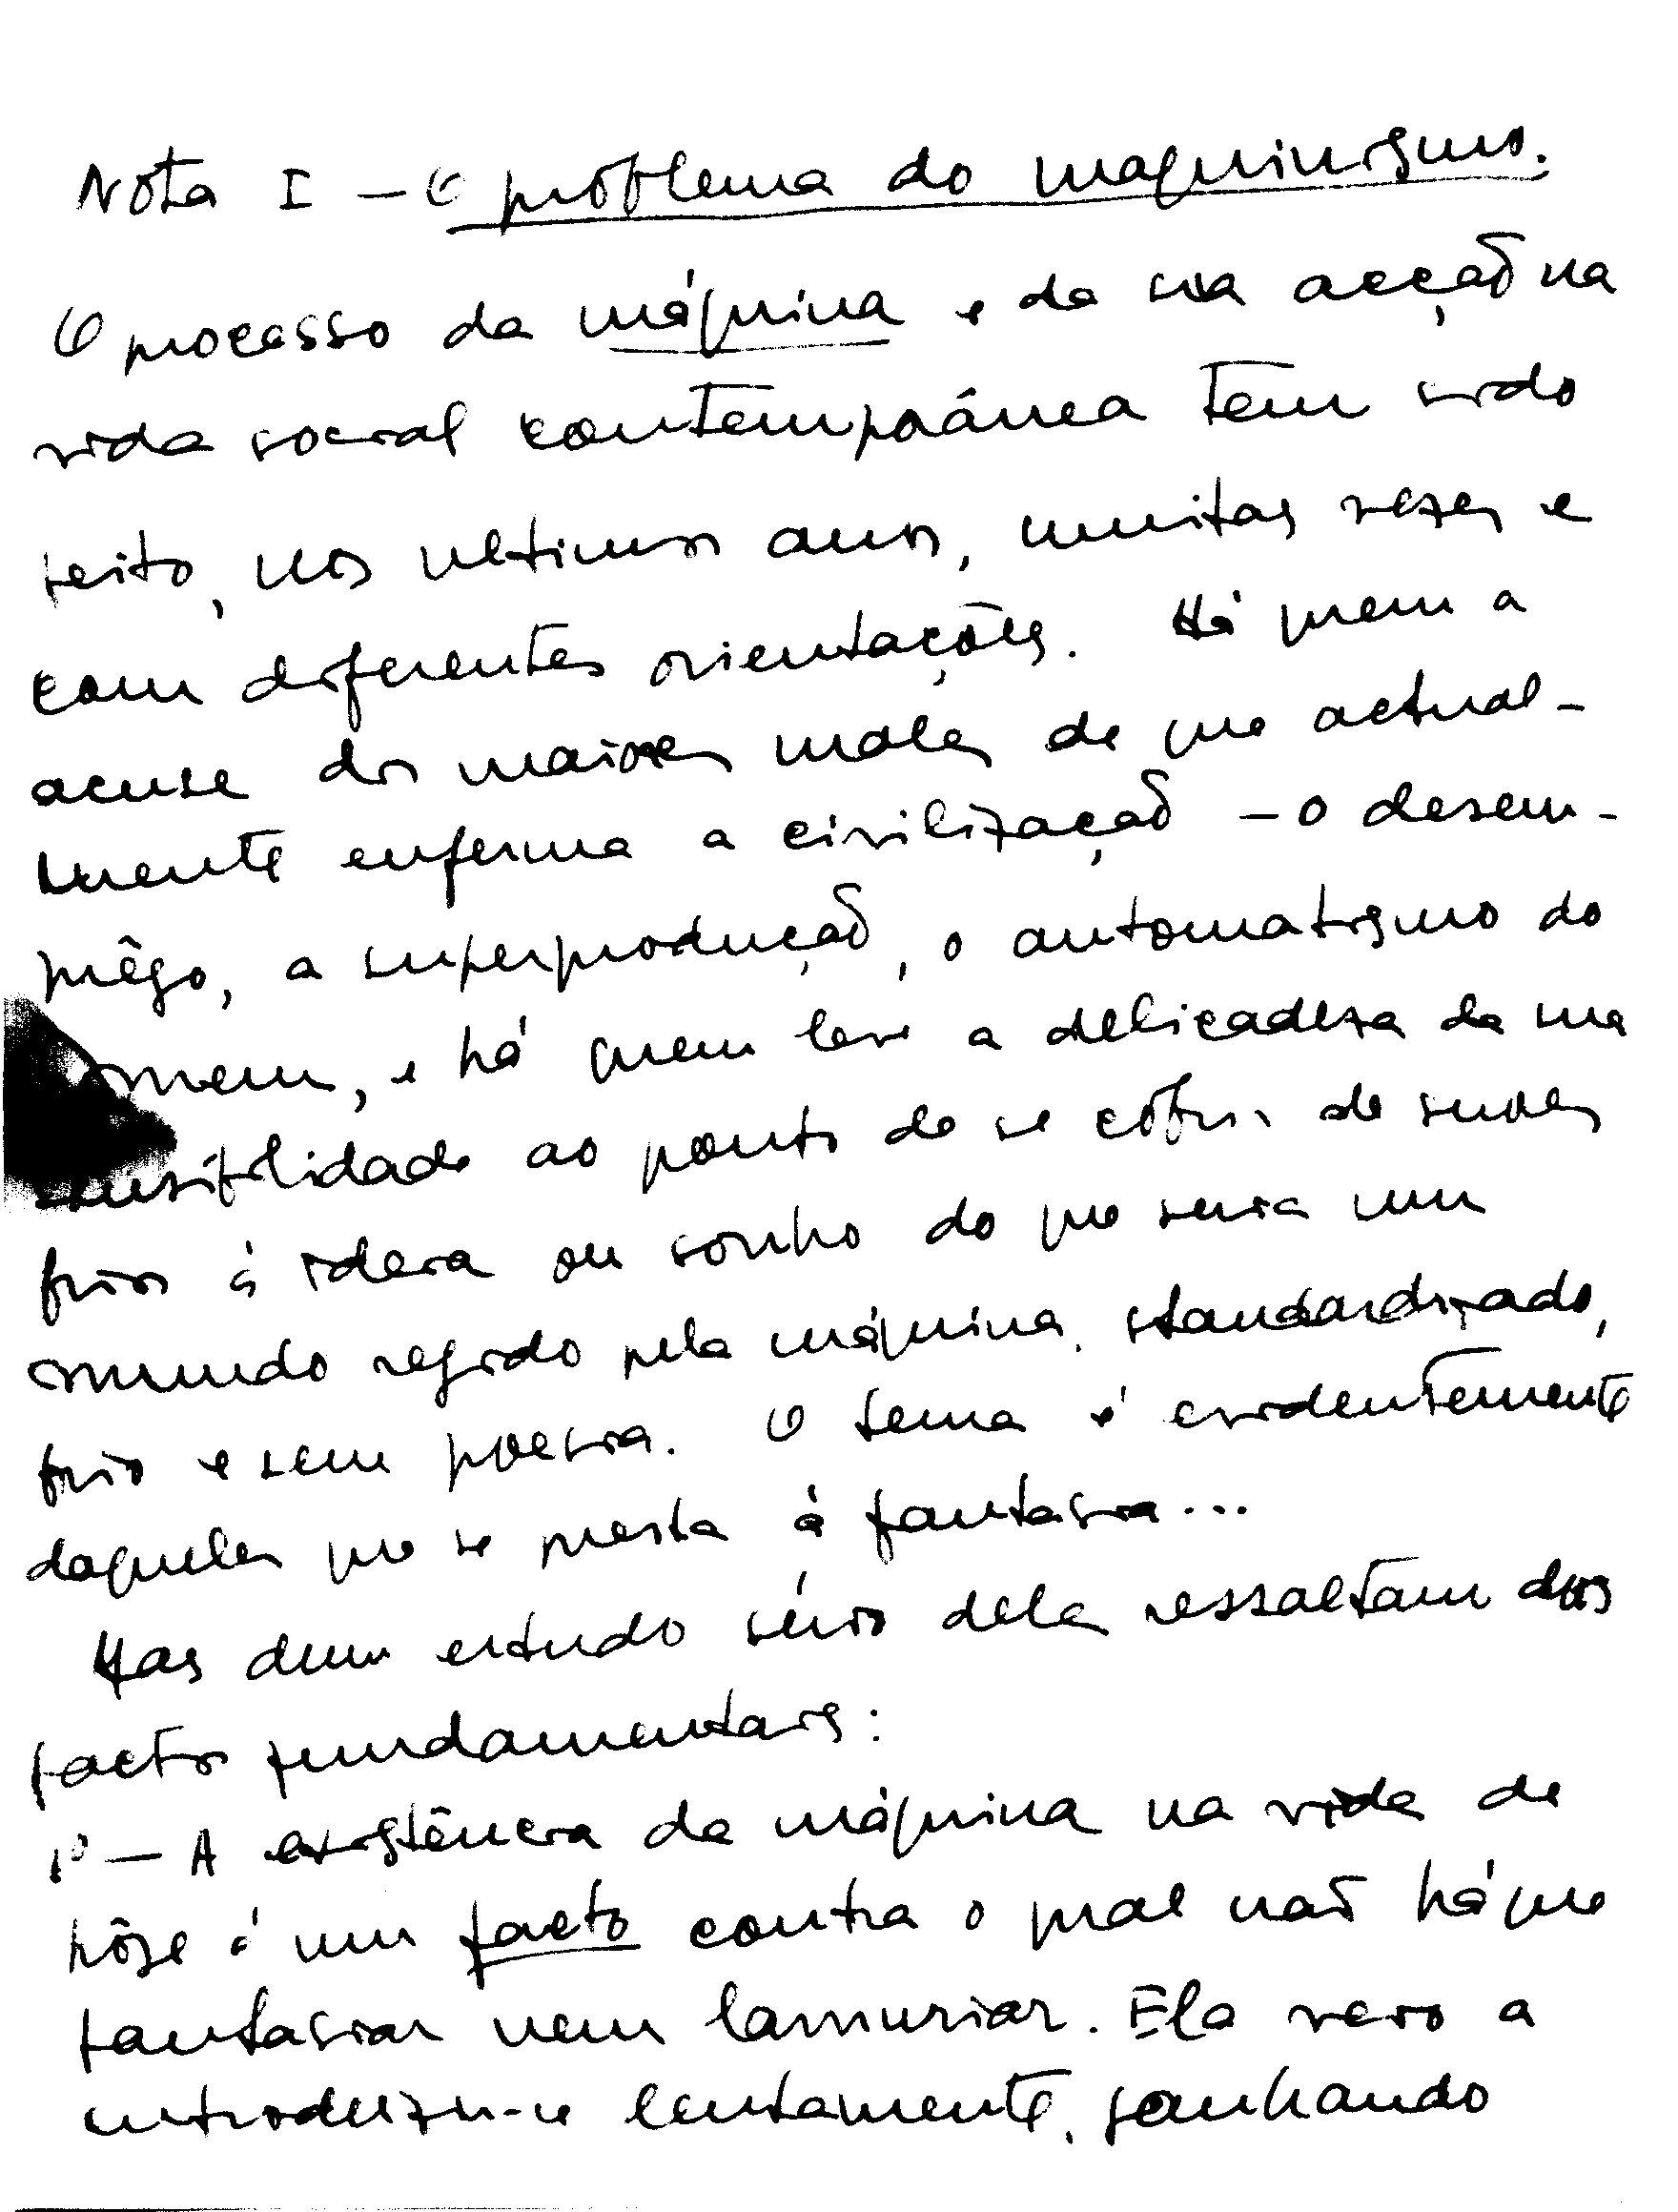 Nota I - O problema do maquinismo.
O processo da máquina e da sua acção na
vida social contemporânea tem sido
feito, nos ultimos anos, muitas vezes e
com diferentes orientações. Há quem a
acuse dos maiores males de que actual-
mente enferma a civilização - o desem-
prêgo, a superprodução, o automatismo do
omem, e há quem leve a delicadeza da sua
ensibilidade ao ponto de se cobrir de suores
frios à ideia ou sonho do que seria um
mundo regido pela máquina, standardizado,
frio e sem poesia. O tema é evidentemente
daqueles que se presta à fantasia...
Mas dum estudo sério dele ressaltam dois
factos fundamentais:
1º - A existência da máquina na vida de
hôje é um facto contra o qual não há que
fantasiar nem lamuriar. Ela veio a
introduzir-se lentamente, ganhando